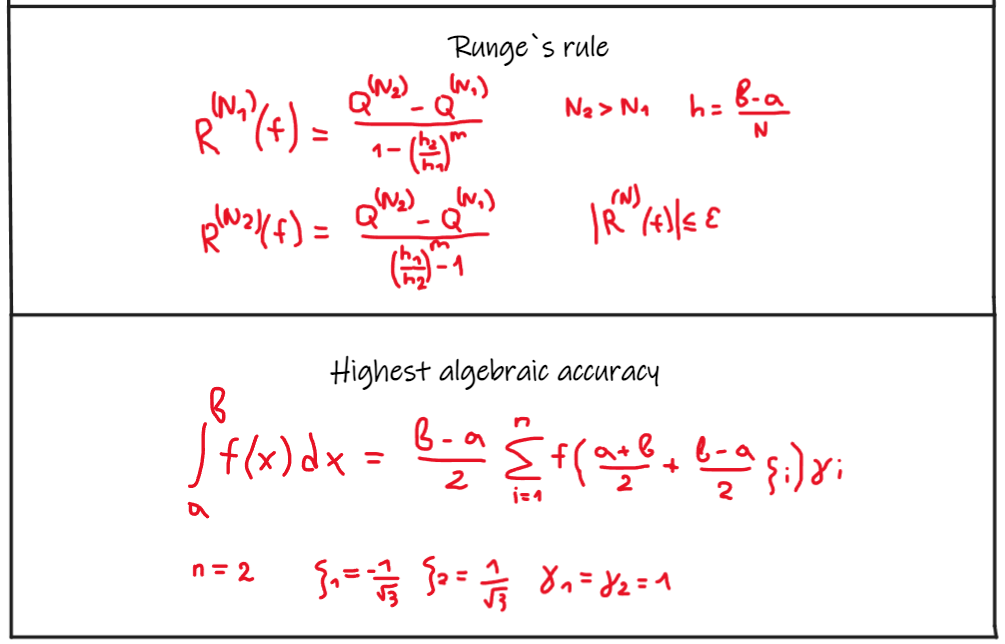 Runge`s rule
R^(N₁)(f) = (Q^(N₂) - Q^(N₁)) / (1 - (h₂/h₁)^m)    N₂ > N₁    h = (b-a)/N
R^(N₂)(f) = (Q^(N₂) - Q^(N₁)) / ((h₁/h₂)^m - 1)    |R^(N)(f)| ≤ ε
Highest algebraic accuracy
∫_a^b f(x)dx = (b-a)/2 ∑_{i=1}^n f((a+b)/2 + (b-a)/2 ξᵢ)γᵢ
n = 2    ξ₁ = -1/√3    ξ₂ = 1/√3    γ₁ = γ₂ = 1